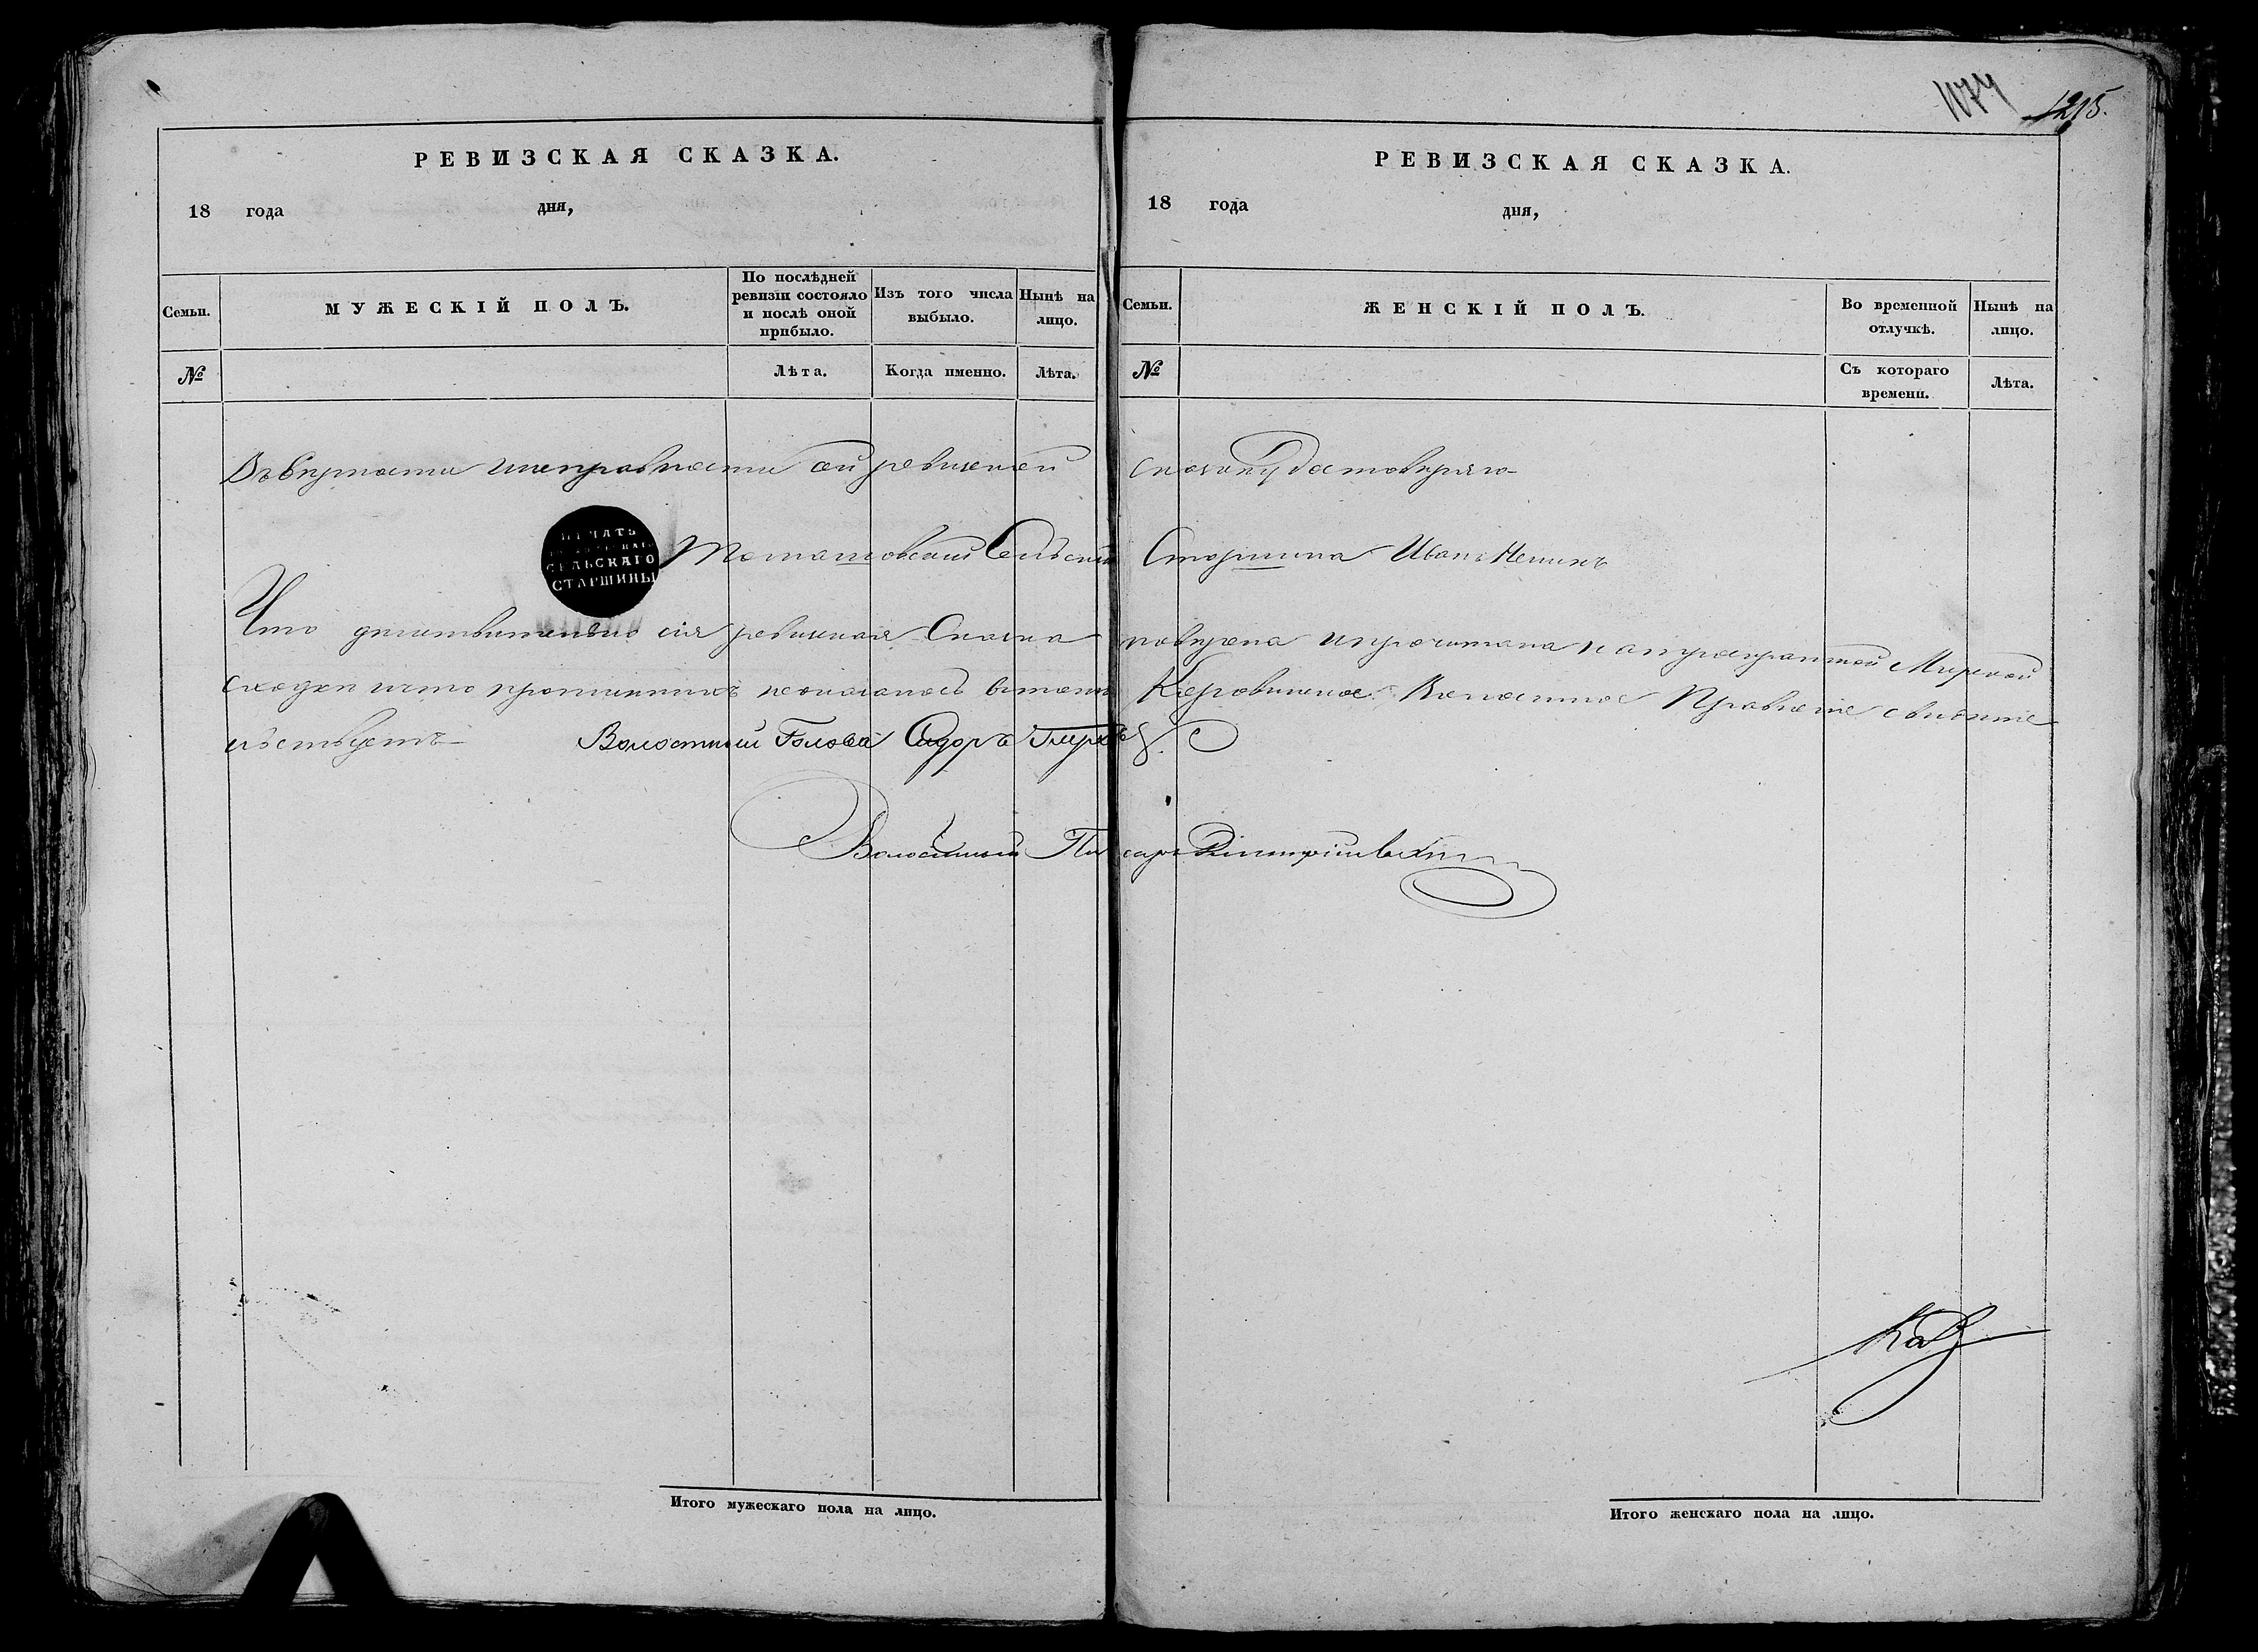 1074 1215.
РЕВИЗСКАЯ СКАЗКА.
18 года дня,
Семьи.
МУЖЕСКІЙ ПОЛЪ.
По послѣдней ревизіи состояло и послѣ оной прибыло.
Изъ того числа выбыло.
Нынѣ на лицо.
№
Лѣта.
Когда именно.
Лѣта.
РЕВИЗСКАЯ СКАЗКА.
18 года дня,
Семьи.
ЖЕНСКІЙ ПОЛЪ.
Во временной отлучкѣ.
Нынѣ на лицо.
№
Съ котораго времени.
Лѣта.
Въ вѣрности и исправности сей ревизкой сказки удостовѣряю
ПЕЧАТЬ
СЕЛЬСКАГО
СТАРШИНЫ
Сельскій Старшина Иванъ
Что дѣйствительно сія ревизкая Сказка повѣрена и прочитана на Мирской
сходки и что не оказалось в томъ Волостное Правленіе свидѣте
льствуетъ Волостный Голова Сидоръ
Волостный Писарь
Итого мужескаго пола на лицо.
Итого женскаго пола на лицо.